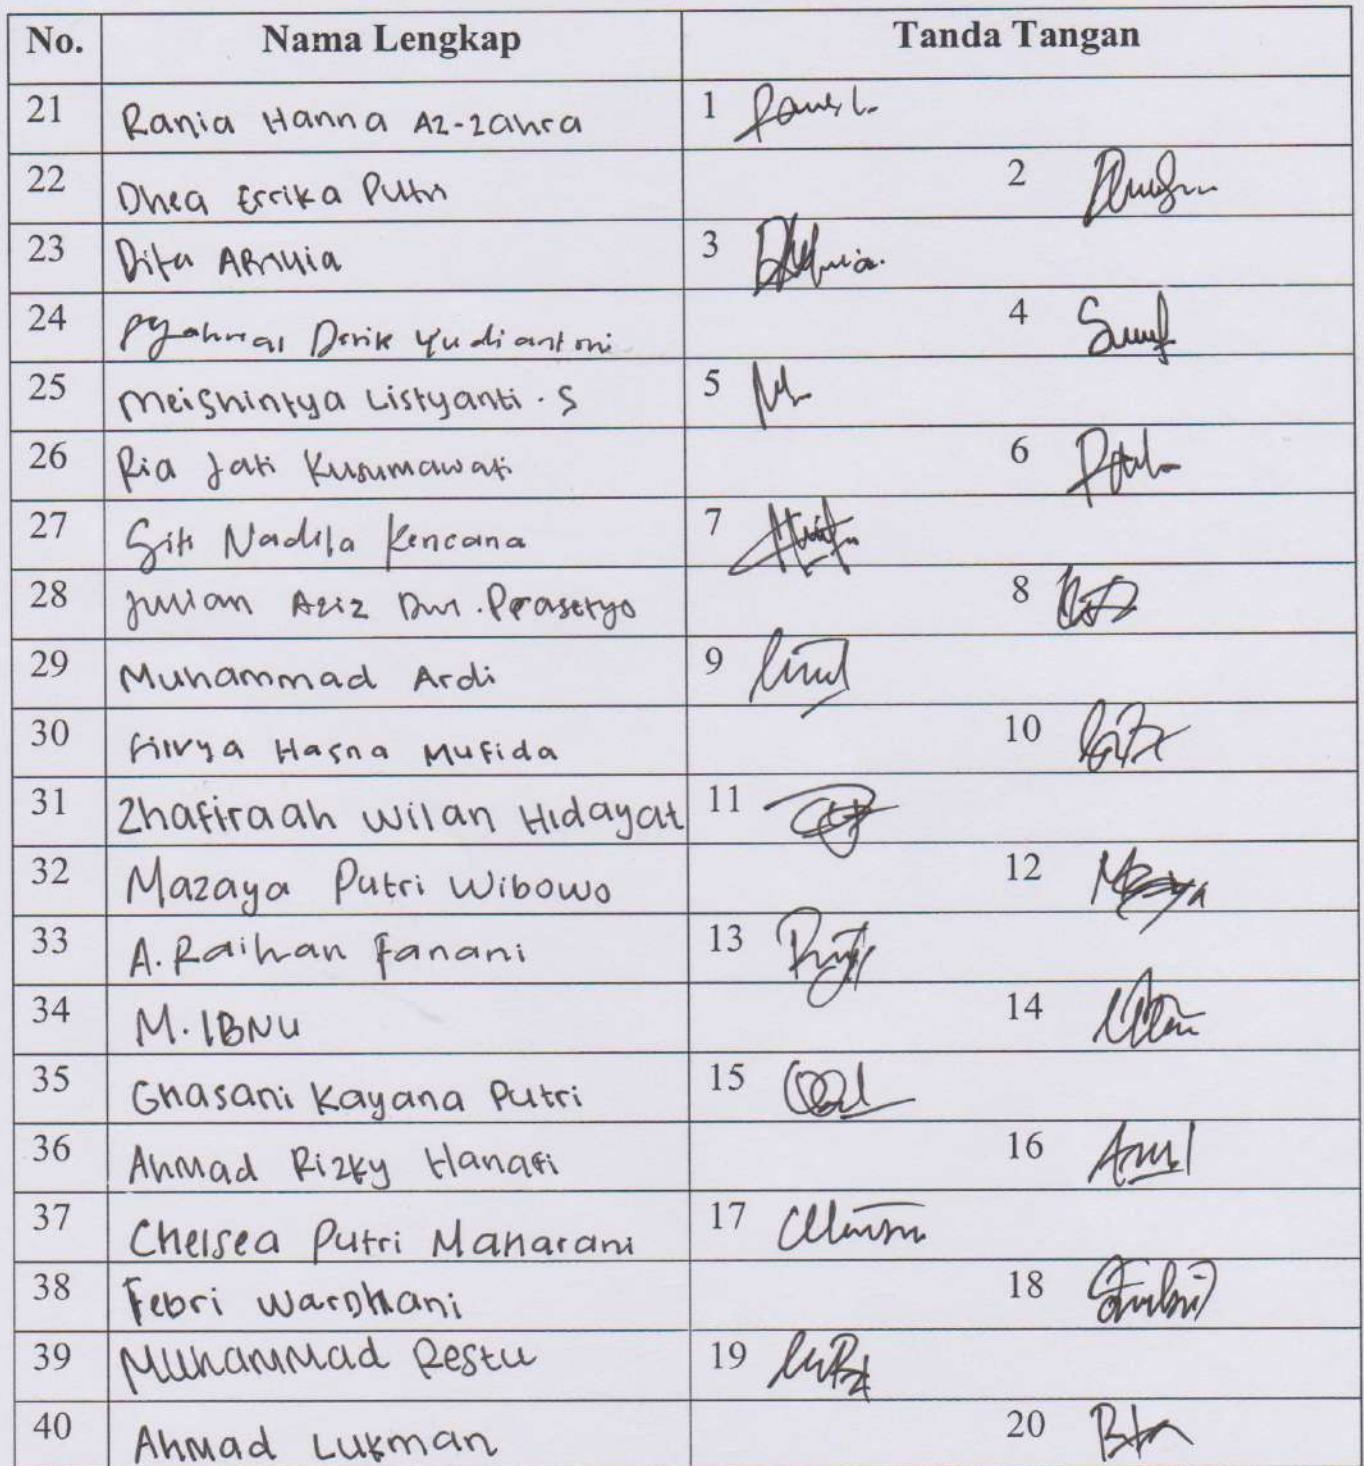 No. Nama Lengkap Tanda Tangan
21 Rania Hanna Az-zahra 1
22 Dhea Errika Putri 2
23 Dita 3
24 Yudiantoni 4
25 Meishintya Listyanti . S 5
26 Ria Jati Kusumawati 6
27 Siti Nadila Kencana 7
28 Julian Aziz Dwi . Prasetyo 8
29 Muhammad Ardi 9
30 Hasna Mufida 10
31 Zhafiraah Wilan Hidayat 11
32 Mazaya Putri Wibowo 12
33 A. Raihan Fanani 13
34 M. IBNU 14
35 Ghasani Kayana Putri 15
36 Ahmad Rizky Hanafi 16
37 Chelsea Putri Maharani 17
38 Febri Wardhani 18
39 Muhammad Restu 19
40 Ahmad Lukman 20